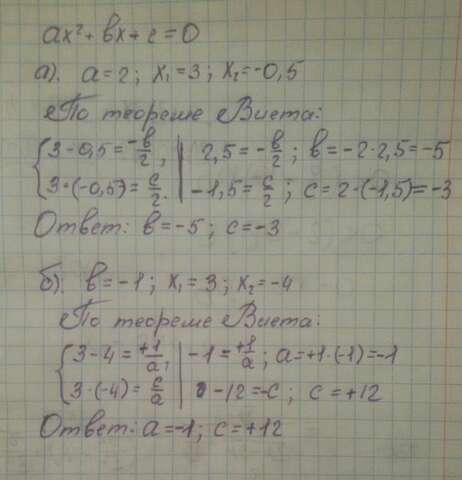 ax² + bx + c = 0
а). a = 2; x₁ = 3; x₂ = -0,5
По теореме Виета:
{ 3 - 0,5 = -b/2, | 2,5 = -b/2; b = -2·2,5 = -5
3·(-0,5) = c/2. | -1,5 = c/2; c = 2·(-1,5) = -3
Ответ: b = -5; c = -3
б). b = -1; x₁ = 3; x₂ = -4
По теореме Виета:
{ 3 - 4 = +1/a, | -1 = +1/a; a = +1·(-1) = -1
3·(-4) = c/a | -12 = -c; c = +12
Ответ: a = -1; c = +12